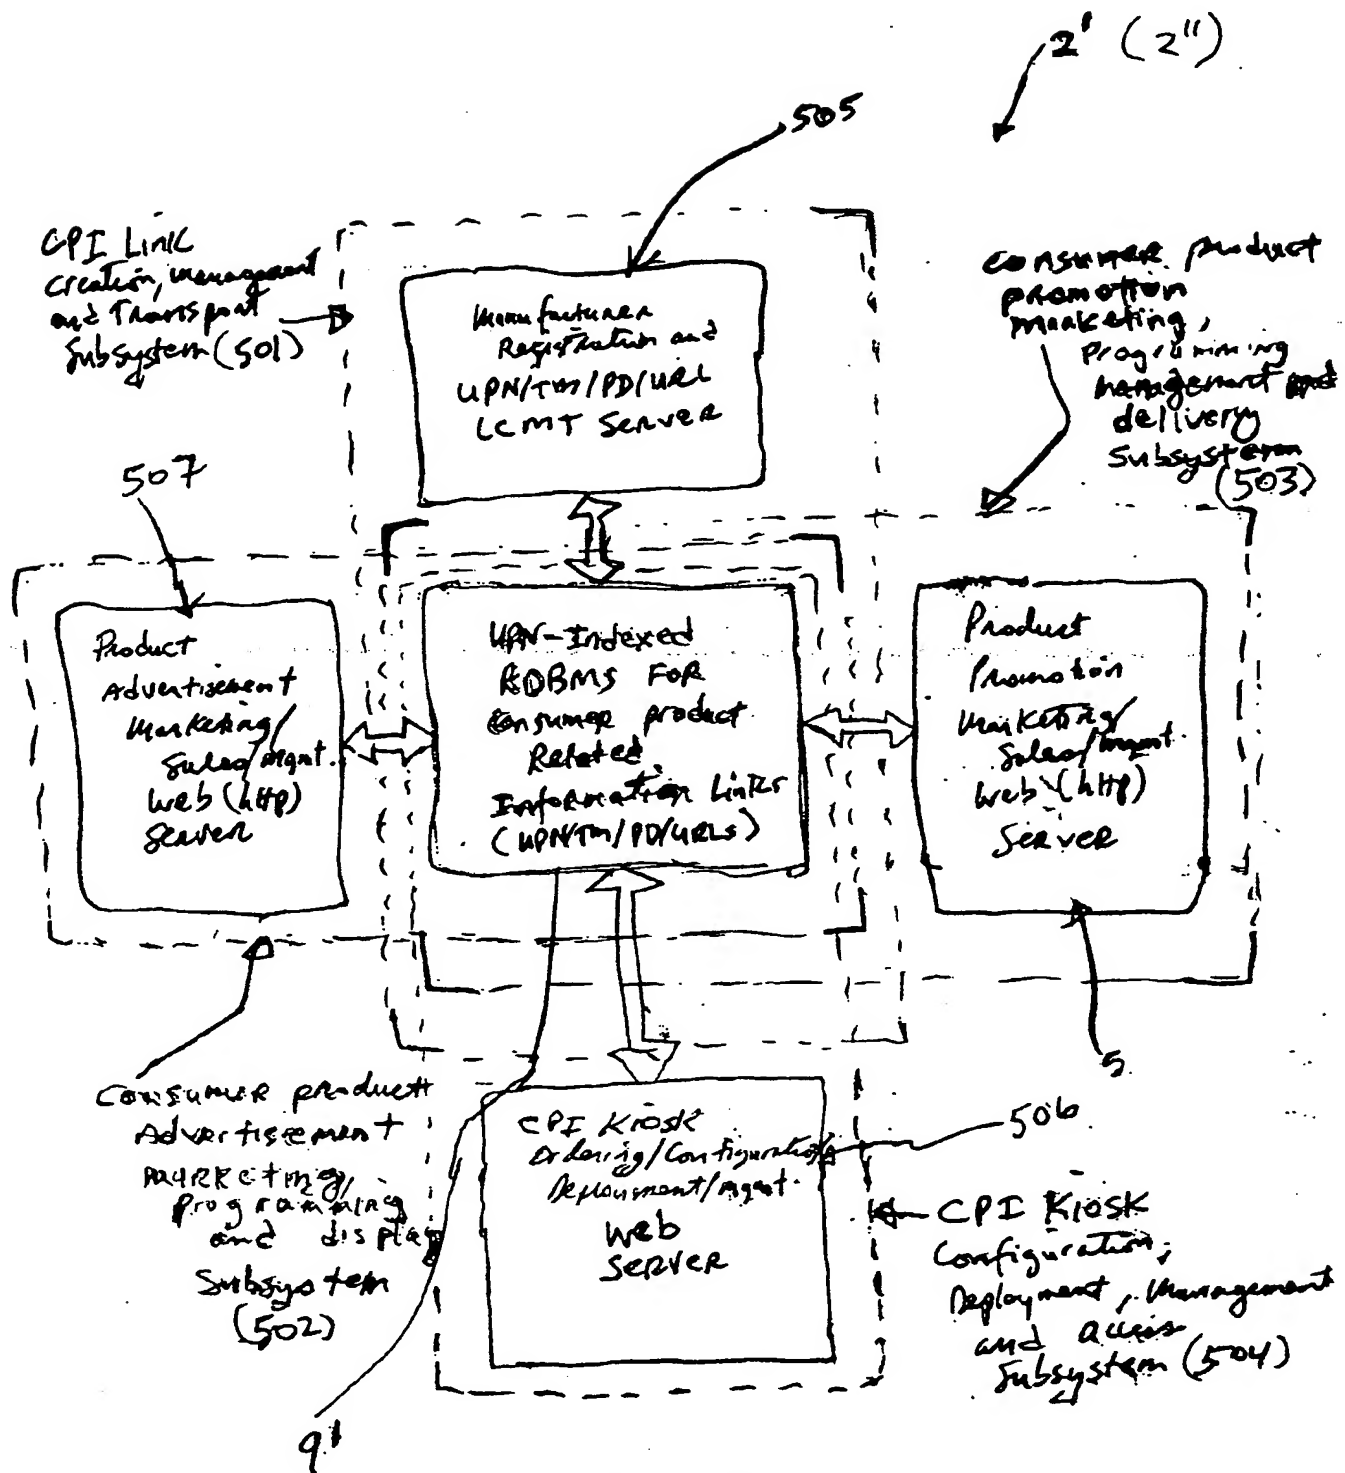 2' (2")
505
CPI Link
Creation, Management
and Transport
Subsystem (501)
Manufacturer
Registration and
UPN/TM/PD/URL
LCMT Server
Consumer product
promotion
marketing,
Programming
management and
delivery
Subsystem
(503)
507
Product
Advertisement
Marketing/
Sales/Mgmt.
Web (http)
Server
UPN-Indexed
RDBMS FOR
Consumer product
Related
Information Links
(UPN/TM/PD/URLs)
Product
Promotion
Marketing/
Sales/Mgmt.
Web (http)
Server
5
Consumer product
Advertisement
Marketing,
programming
and display
Subsystem
(502)
CPI Kiosk
Ordering/Configuration/
Deployment/Mgmt.
Web
Server
506
CPI Kiosk
Configuration,
Deployment, Management
and Access
Subsystem (504)
9'